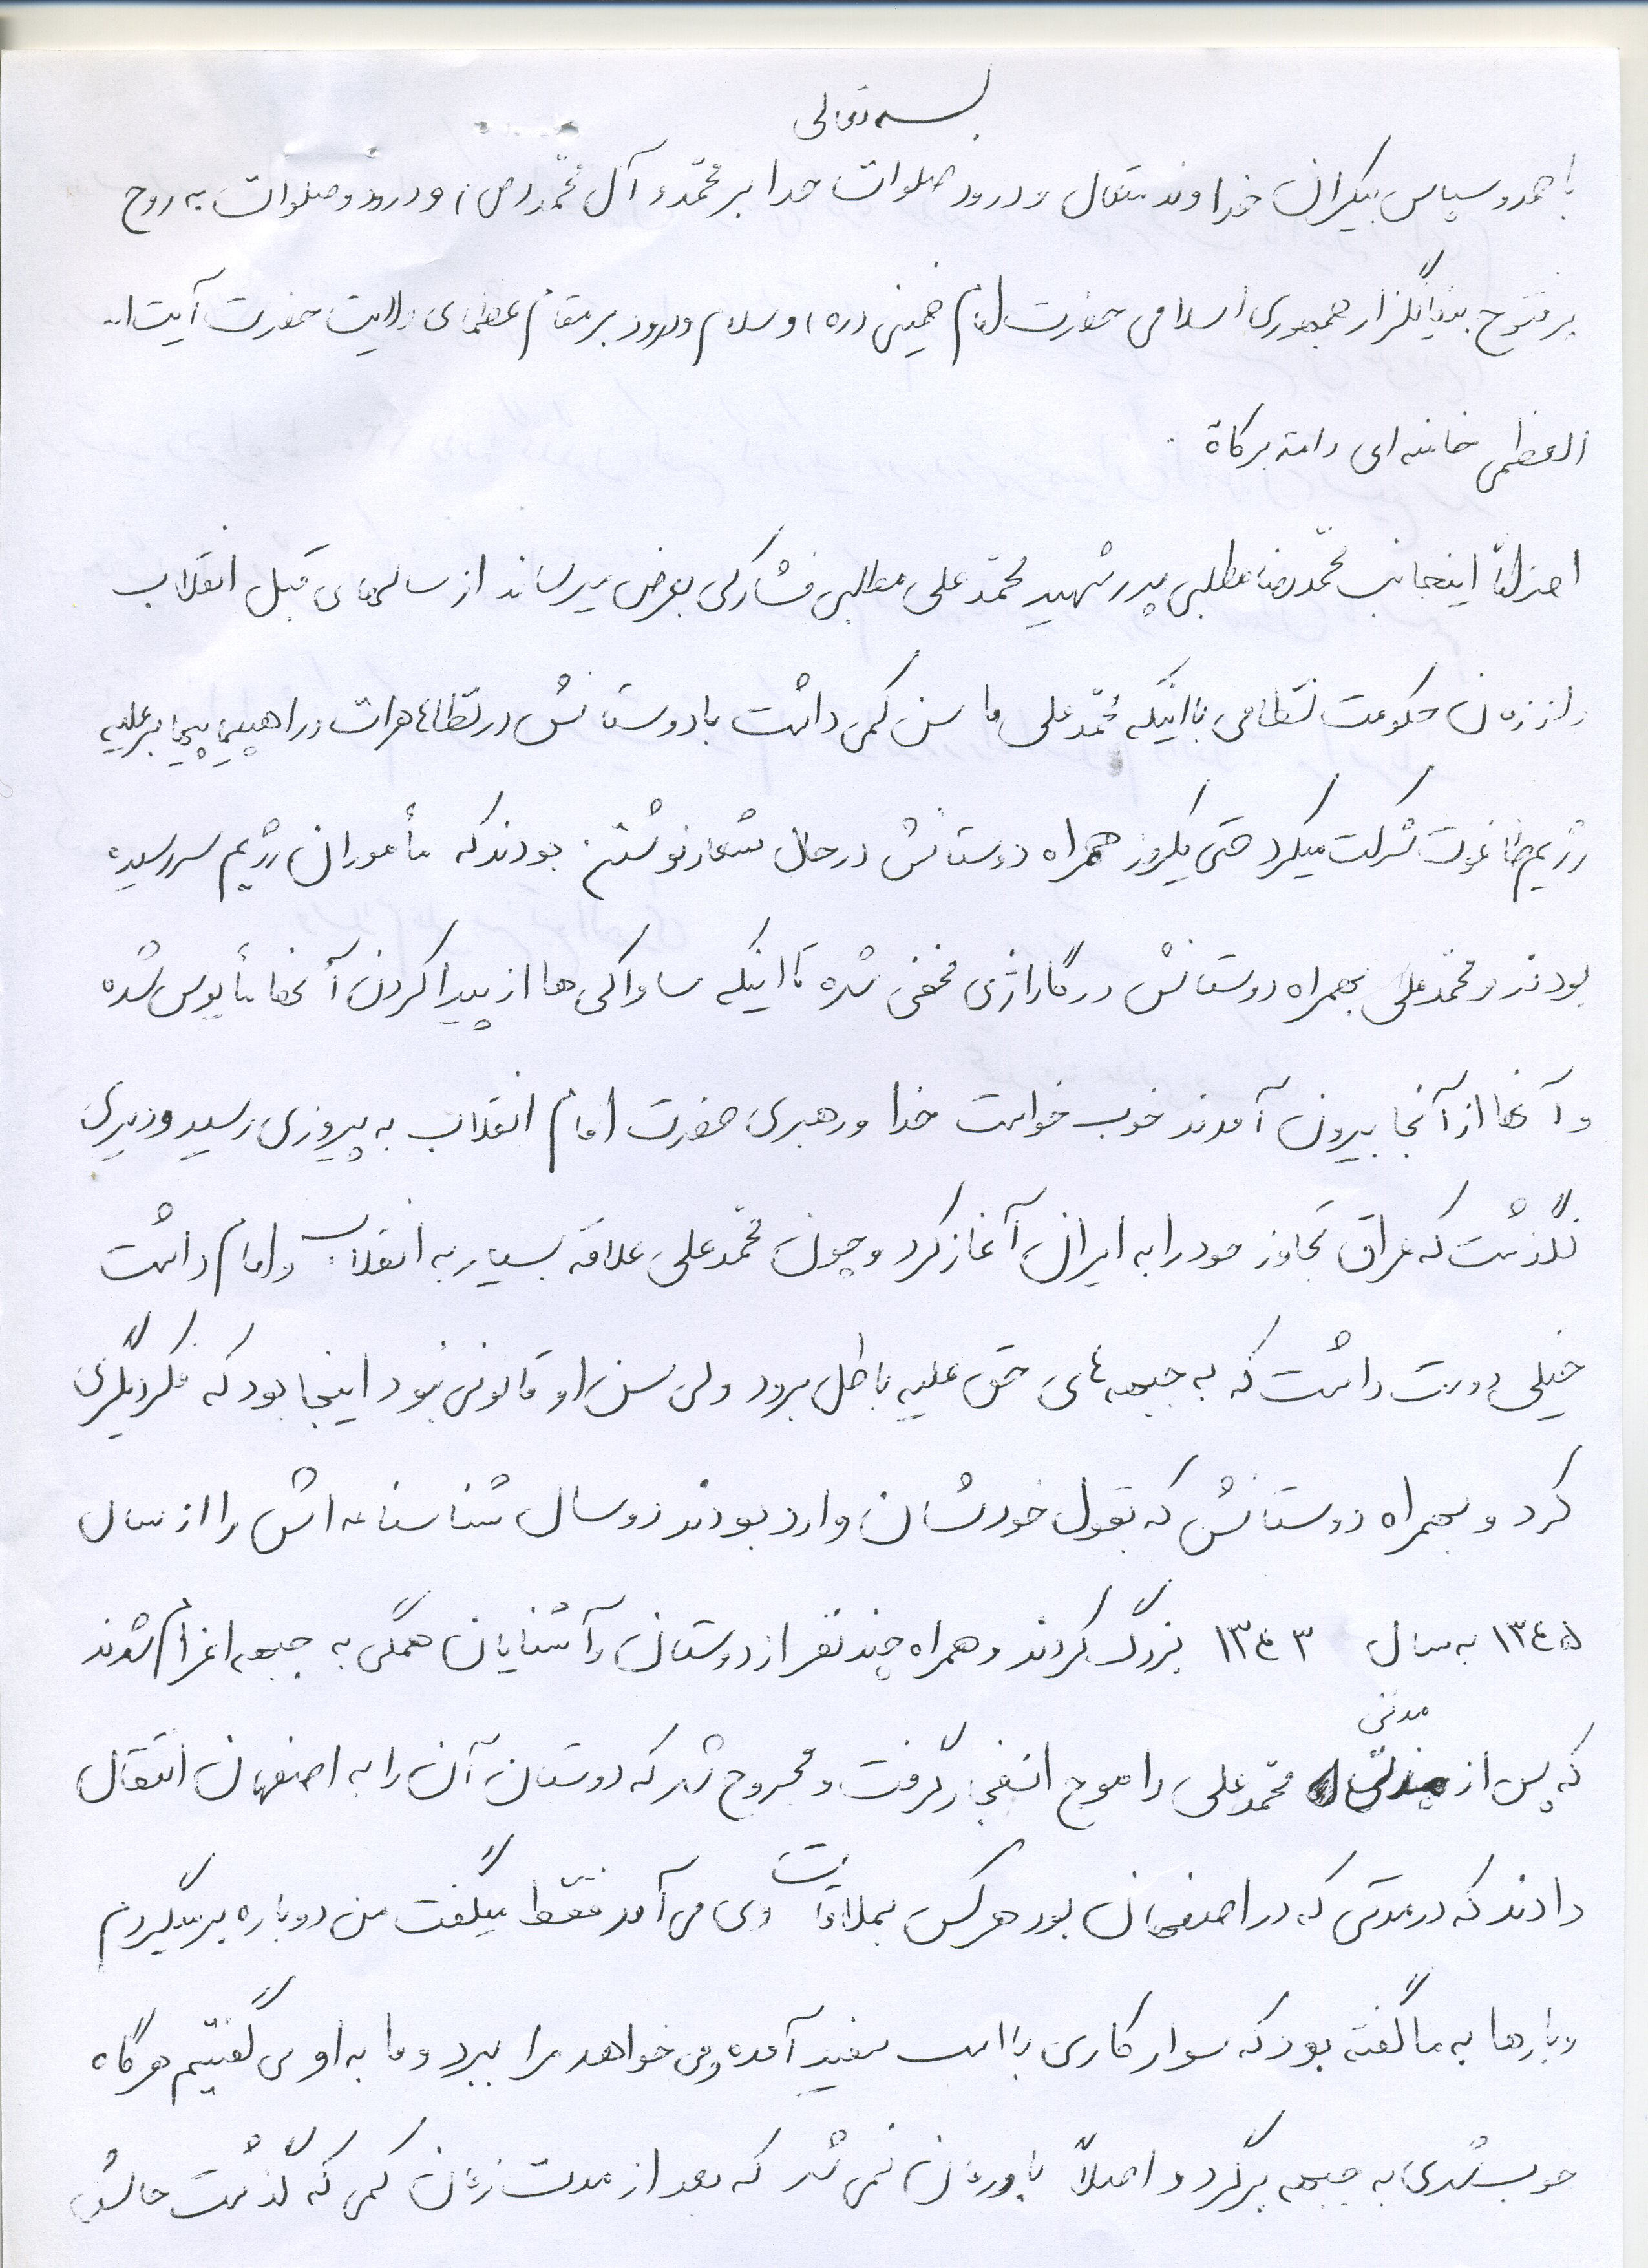 بسمه تعالی
با حمد و سپاس بیکران خداوند متعال و درود صلوات خدا بر محمّد و آل محمّد (ص) و درود و صلوات به روح
پر فتوح بنیانگزار جمهوری اسلامی حضرت امام خمینی (ره) و سلام و درود بر مقام عظمای ولایت حضرت آیت ا..
العظمی خامنه ای دامته برکاة .
احتراماً اینجانب محمّدرضا مطلبی پدر شهید محمّدعلی مطلبی فشارکی بعرض میرساند از سالهای قبل انقلاب
و از زمان حکومت نظامی با اینکه محمّدعلی ما سن کمی داشت با دوستانش در تظاهرات و راهپیمایها بر علیه
رژیم طاغوت شرکت میکرد حتی یکروز همراه دوستانش در حال شعار نوشتن بودند که مأموران رژیم سر رسیده
بودند و محمّدعلی بهمراه دوستانش در گاراژی مخفی شده تا اینکه ساواکی ها از پیدا کردن آنها مأیوس شده
و آنها از آنجا بیرون آمدند خوب خواست خدا و رهبری حضرت امام انقلاب به پیروزی رسید و دیری
نگذشت که عراق تجاوز خود را به ایران آغاز کرد و چون محمّدعلی علاقه بسیار به انقلاب و امام داشت
خیلی دوست داشت که به جبهه های حق علیه باطل برود ولی سن او قانونی نبود اینجا بود که فکر دیگری
کرد و بهمراه دوستانش که بقول خودشان وارد بودند دو سال شناسنامه اش را از سال
۱۳۴۵ به سال ۱۳۴۳ بزرگ کردند و همراه چند نفر از دوستان و آشنایان همگی به جبهه اعزام شدند
که پس از مدتی محمّدعلی را موج انفجار گرفت و مجروح شد که دوستان آن را به اصفهان انتقال
دادند که در مدتی که در اصفهان بود هر کس بملاقات وی می آمد فقط میگفت من دوباره برمیگردم
و بارها به ما گفته بود که سوار کاری با اسب سفید آمده و می خواهد مرا ببرد و ما به او می گفتیم هرگاه
خوب شدی به جبهه برگرد و اصلاً باورمان نمی شد که بعد از مدت زمان کمی که گذشت حالش